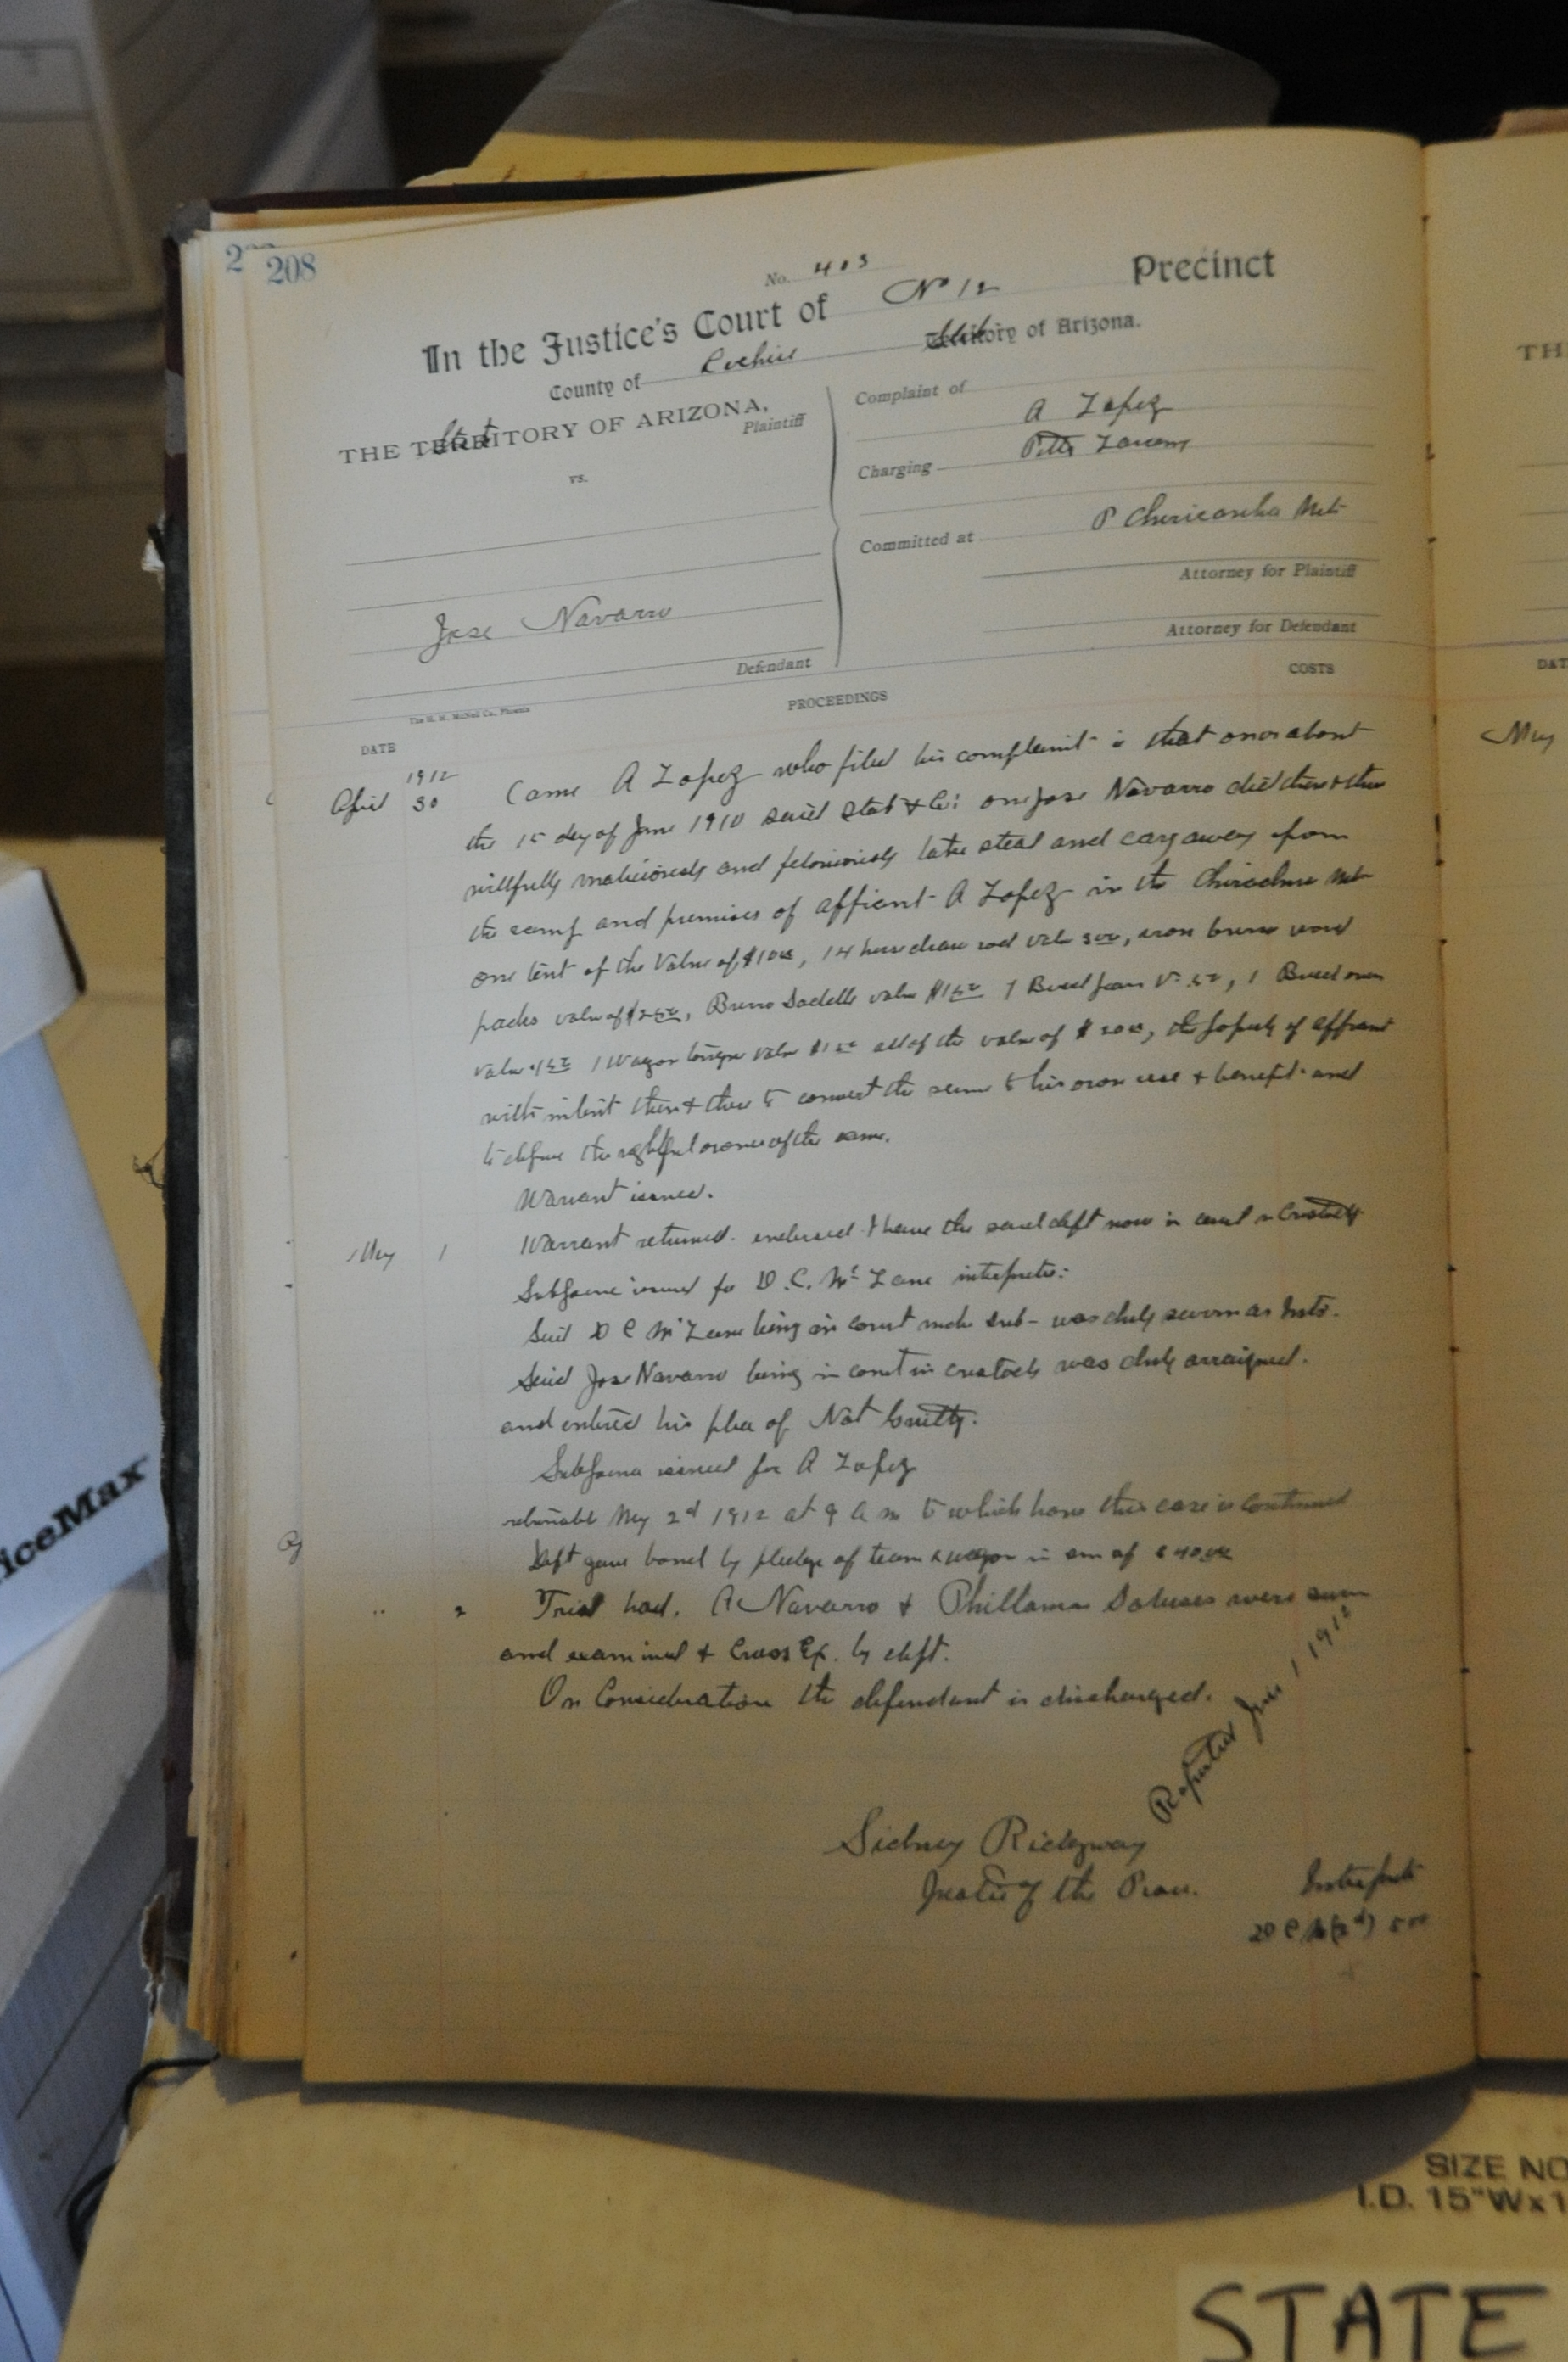 208
No. 403
In the Justice's Court of No 12 Precinct
County of Cochise State Territory of Arizona.
THE State TERRITORY OF ARIZONA,
Plaintiff
vs.
Jose Navarro
Defendant
The H. H. McNeil Co., Phoenix
Complaint of A Lopez
Charging Petty Larceny
Committed at Chiricahua Mts
Attorney for Plaintiff
Attorney for Defendant
DATE PROCEEDINGS COSTS
1912
April 30 Came A Lopez who filed his complaint that on or about
the 15 day of June 1910 said State & Co: one Jose Navarro did then & there
willfully maliciously and feloniously take steal and cary away from
the camp and premises of affiant A Lopez in the Chiricahua Mts
one tent of the Value of $10.00, 14 rod , iron burro wood
packs value of , Burro Saddle value 1
value 1 Wagon tongue value all of the value of , the property of affiant
with intent then & there to convert the same to his own use & benefit and
to defraud the rightful owner of the same.
Warrant issued.
May 1 Warrant returned endorsed I have the said deft now in court in Custody
Subpoena issued for D. C. McLane interpreter:
Said D C McLane being in court under sub- was duly sworn as Intr.
Said Jose Navarro being in court in custody was duly arraigned.
and entered his plea of Not Guilty.
Subpoena issued for A Lopez
returnable May 2nd 1912 at 9 a m to which hour this case is Continued
Deft gave bond by pledge of team & wagon in sum of $40.00
" 2 Trial had. A Navarro & were sworn
and examined & Cross Ex. by deft.
On Consideration the defendant is discharged.
Reported 1 1912
Sidney Ridgway
Justice of the Peace.
Interpreter
THE
DAT
May
iceMax
SIZE NO
I.D. 15"Wx1
STATE